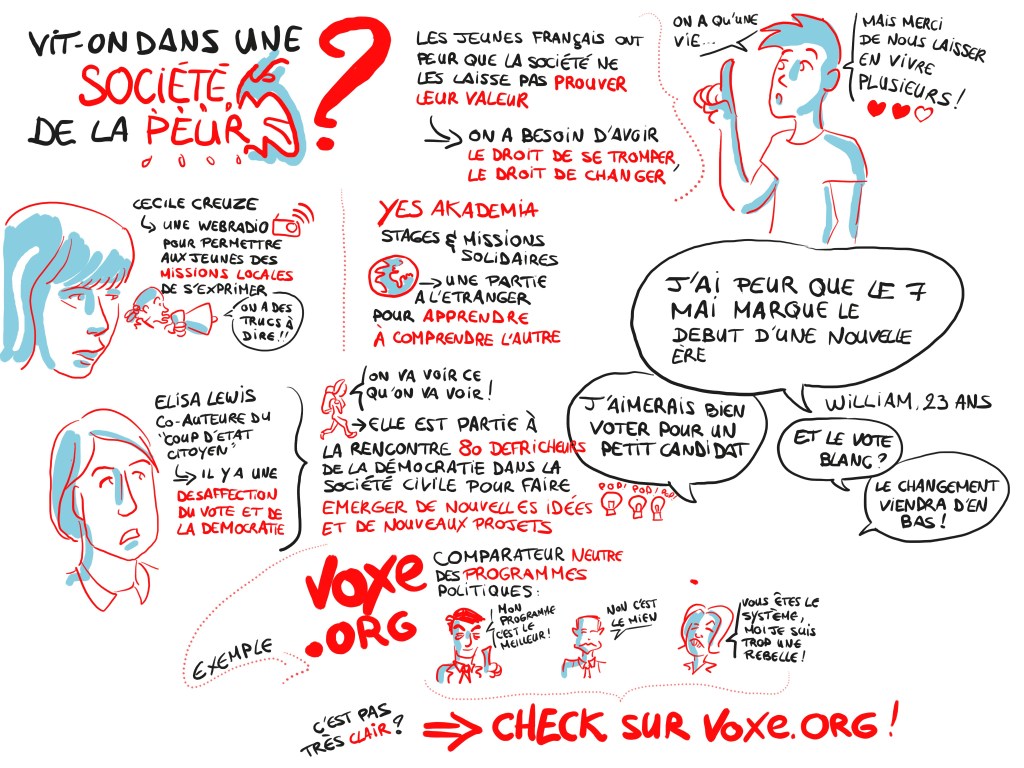 VIT-ON DANS UNE
SOCIÉTÉ
DE LA PEUR ?
LES JEUNES FRANÇAIS ONT
PEUR QUE LA SOCIÉTÉ NE
LES LAISSE PAS PROUVER
LEUR VALEUR
ON A BESOIN D'AVOIR
LE DROIT DE SE TROMPER,
LE DROIT DE CHANGER
ON A QU'UNE
VIE...
MAIS MERCI
DE NOUS LAISSER
EN VIVRE
PLUSIEURS !
CECILE CREUZE
UNE WEBRADIO
POUR PERMETTRE
AUX JEUNES DES
MISSIONS LOCALES
DE S'EXPRIMER
ON A DES
TRUCS À
DIRE !!
YES AKADEMIA
STAGES & MISSIONS
SOLIDAIRES
UNE PARTIE
A L'ETRANGER
POUR APPRENDRE
À COMPRENDRE L'AUTRE
J'AI PEUR QUE LE 7
MAI MARQUE LE
DEBUT D'UNE NOUVELLE
ÈRE
WILLIAM, 23 ANS
J'AIMERAIS BIEN
VOTER POUR UN
PETIT CANDIDAT
ET LE VOTE
BLANC ?
LE CHANGEMENT
VIENDRA D'EN
BAS !
ELISA LEWIS
CO-AUTEURE DU
"COUP D'ETAT
CITOYEN"
IL Y A UNE
DESAFFECTION
DU VOTE ET DE
LA DEMOCRATIE
ON VA VOIR CE
QU'ON VA VOIR !
ELLE EST PARTIE À
LA RENCONTRE 80 DEFRICHEURS
DE LA DÉMOCRATIE DANS LA
SOCIÉTÉ CIVILE POUR FAIRE
EMERGER DE NOUVELLES IDÉES
ET DE NOUVEAUX PROJETS
POP! POP! POP!
EXEMPLE
VOXE
.ORG
COMPARATEUR NEUTRE
DES PROGRAMMES
POLITIQUES :
MON
PROGRAMME
C'EST LE
MEILLEUR !
NON C'EST
LE MIEN
VOUS ÊTES LE
SYSTÈME,
MOI JE SUIS
TROP UNE
REBELLE !
C'EST PAS
TRÈS CLAIR ?
CHECK SUR VOXE.ORG !